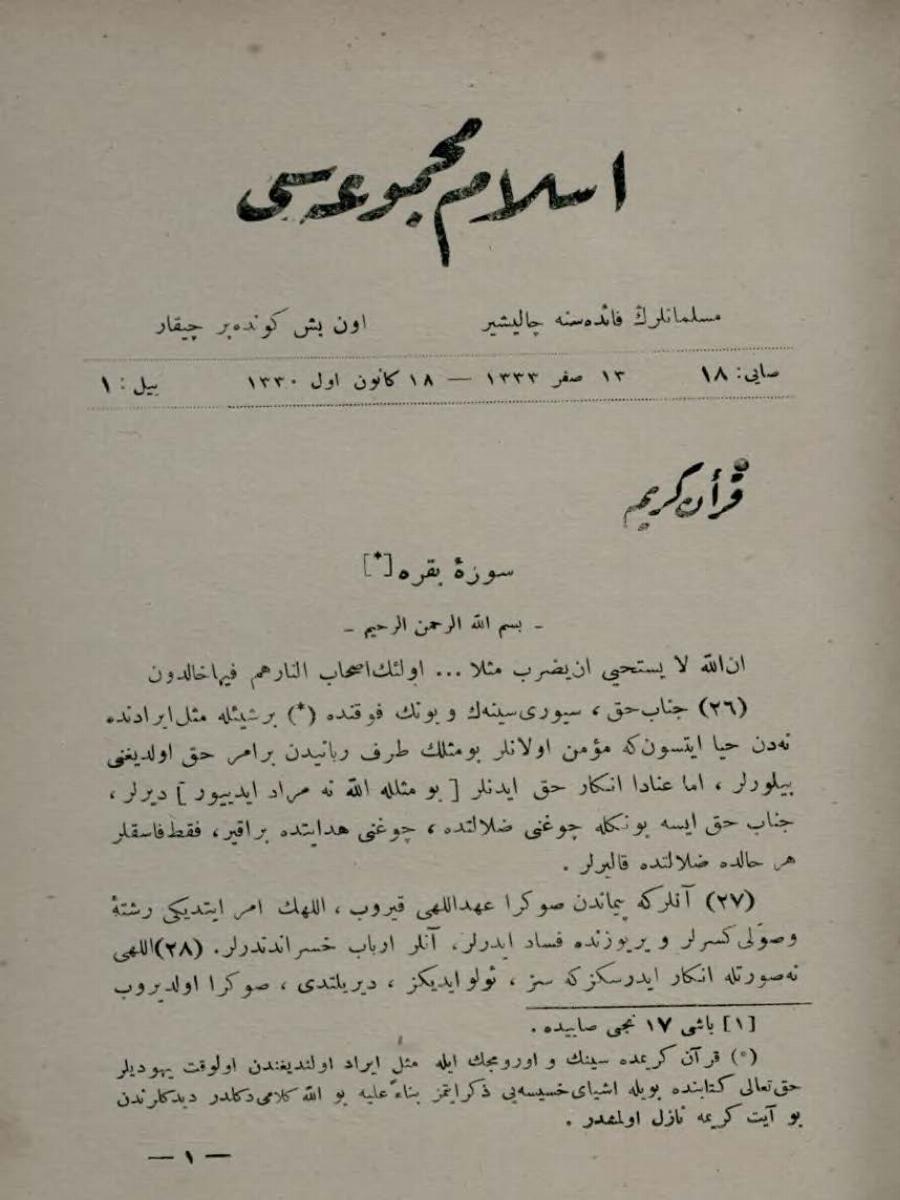 اسلام مجموعه سی
مسلمانلرڭ فائده‌سنه چالیشیر اون بش کونده‌بر چیقار
صایی: ۱۸ ۱۳ صفر ۱۳۳۳ — ۱۸ کانون اول ۱۳۳۰ ییل: ۱
قرأن کریم
سورهٔ بقره [*]
ـ بسم الله الرحمن الرحیم ـ
ان‌الله لا یستحیی ان‌یضرب مثلا ... اولئك‌اصحاب النارهم فیهاخالدون
(۲۶) جناب‌حق ، سیوری‌سینه‌ك و بونك فوقنده (*) برشیئله مثل‌ایرادنده
نه‌دن حیا ایتسون‌که مؤمن اولانلر بومثلك طرف ربانیدن برامر حق اولدیغنی
بیلورلر ، اما عنادا انکار حق ایدنلر [ بو مثلله الله نه مراد ایدییور ] دیرلر ،
جناب حق ایسه بونکله چوغنی ضلالتده ، چوغنی هدایتده براقیر ، فقط‌فاسقلر
هر حالده ضلالتده قالیرلر .
(۲۷) آنلرکه پیماندن صوکرا عهداللهی قیروب ، اللهك امر ایتدیکی رشتهٔ
وصولی‌کسرلر و یریوزنده فساد ایدرلر، آنلر ارباب خسراندندرلر. (۲۸)اللهی
نه‌صورتله انکار ایدرسکزکه سز ، ئولوایدیکز ، دیریلتدی ، صوکرا اولدیروب
[۱] باشی ۱۷ نجی صاییده .
(*) قرآن کریمده سینك و اورومجك ایله مثل ایراد اولندیغندن اولوقت یهودیلر
حق‌تعالی کتابنده بویله اشیای‌خسیسه‌یی ذکرایتمز بناءً علیه بو الله‌کلامی‌دکلدر دیدکلرندن
بو آیت کریمه نازل اولمشدر .
— ۱ —